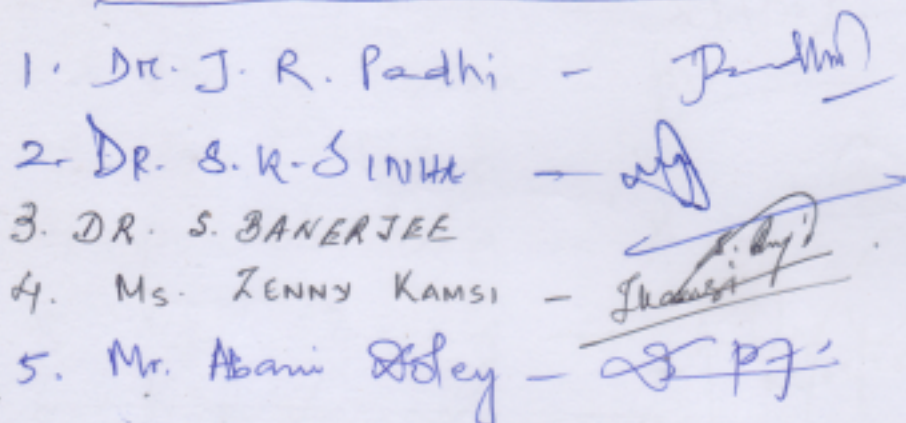 1. Dr. J. R. Padhi -
2. DR. S. K. SINHA -
3. DR. S. BANERJEE
4. Ms. ZENNY KAMSI -
5. Mr. Abani Doley -